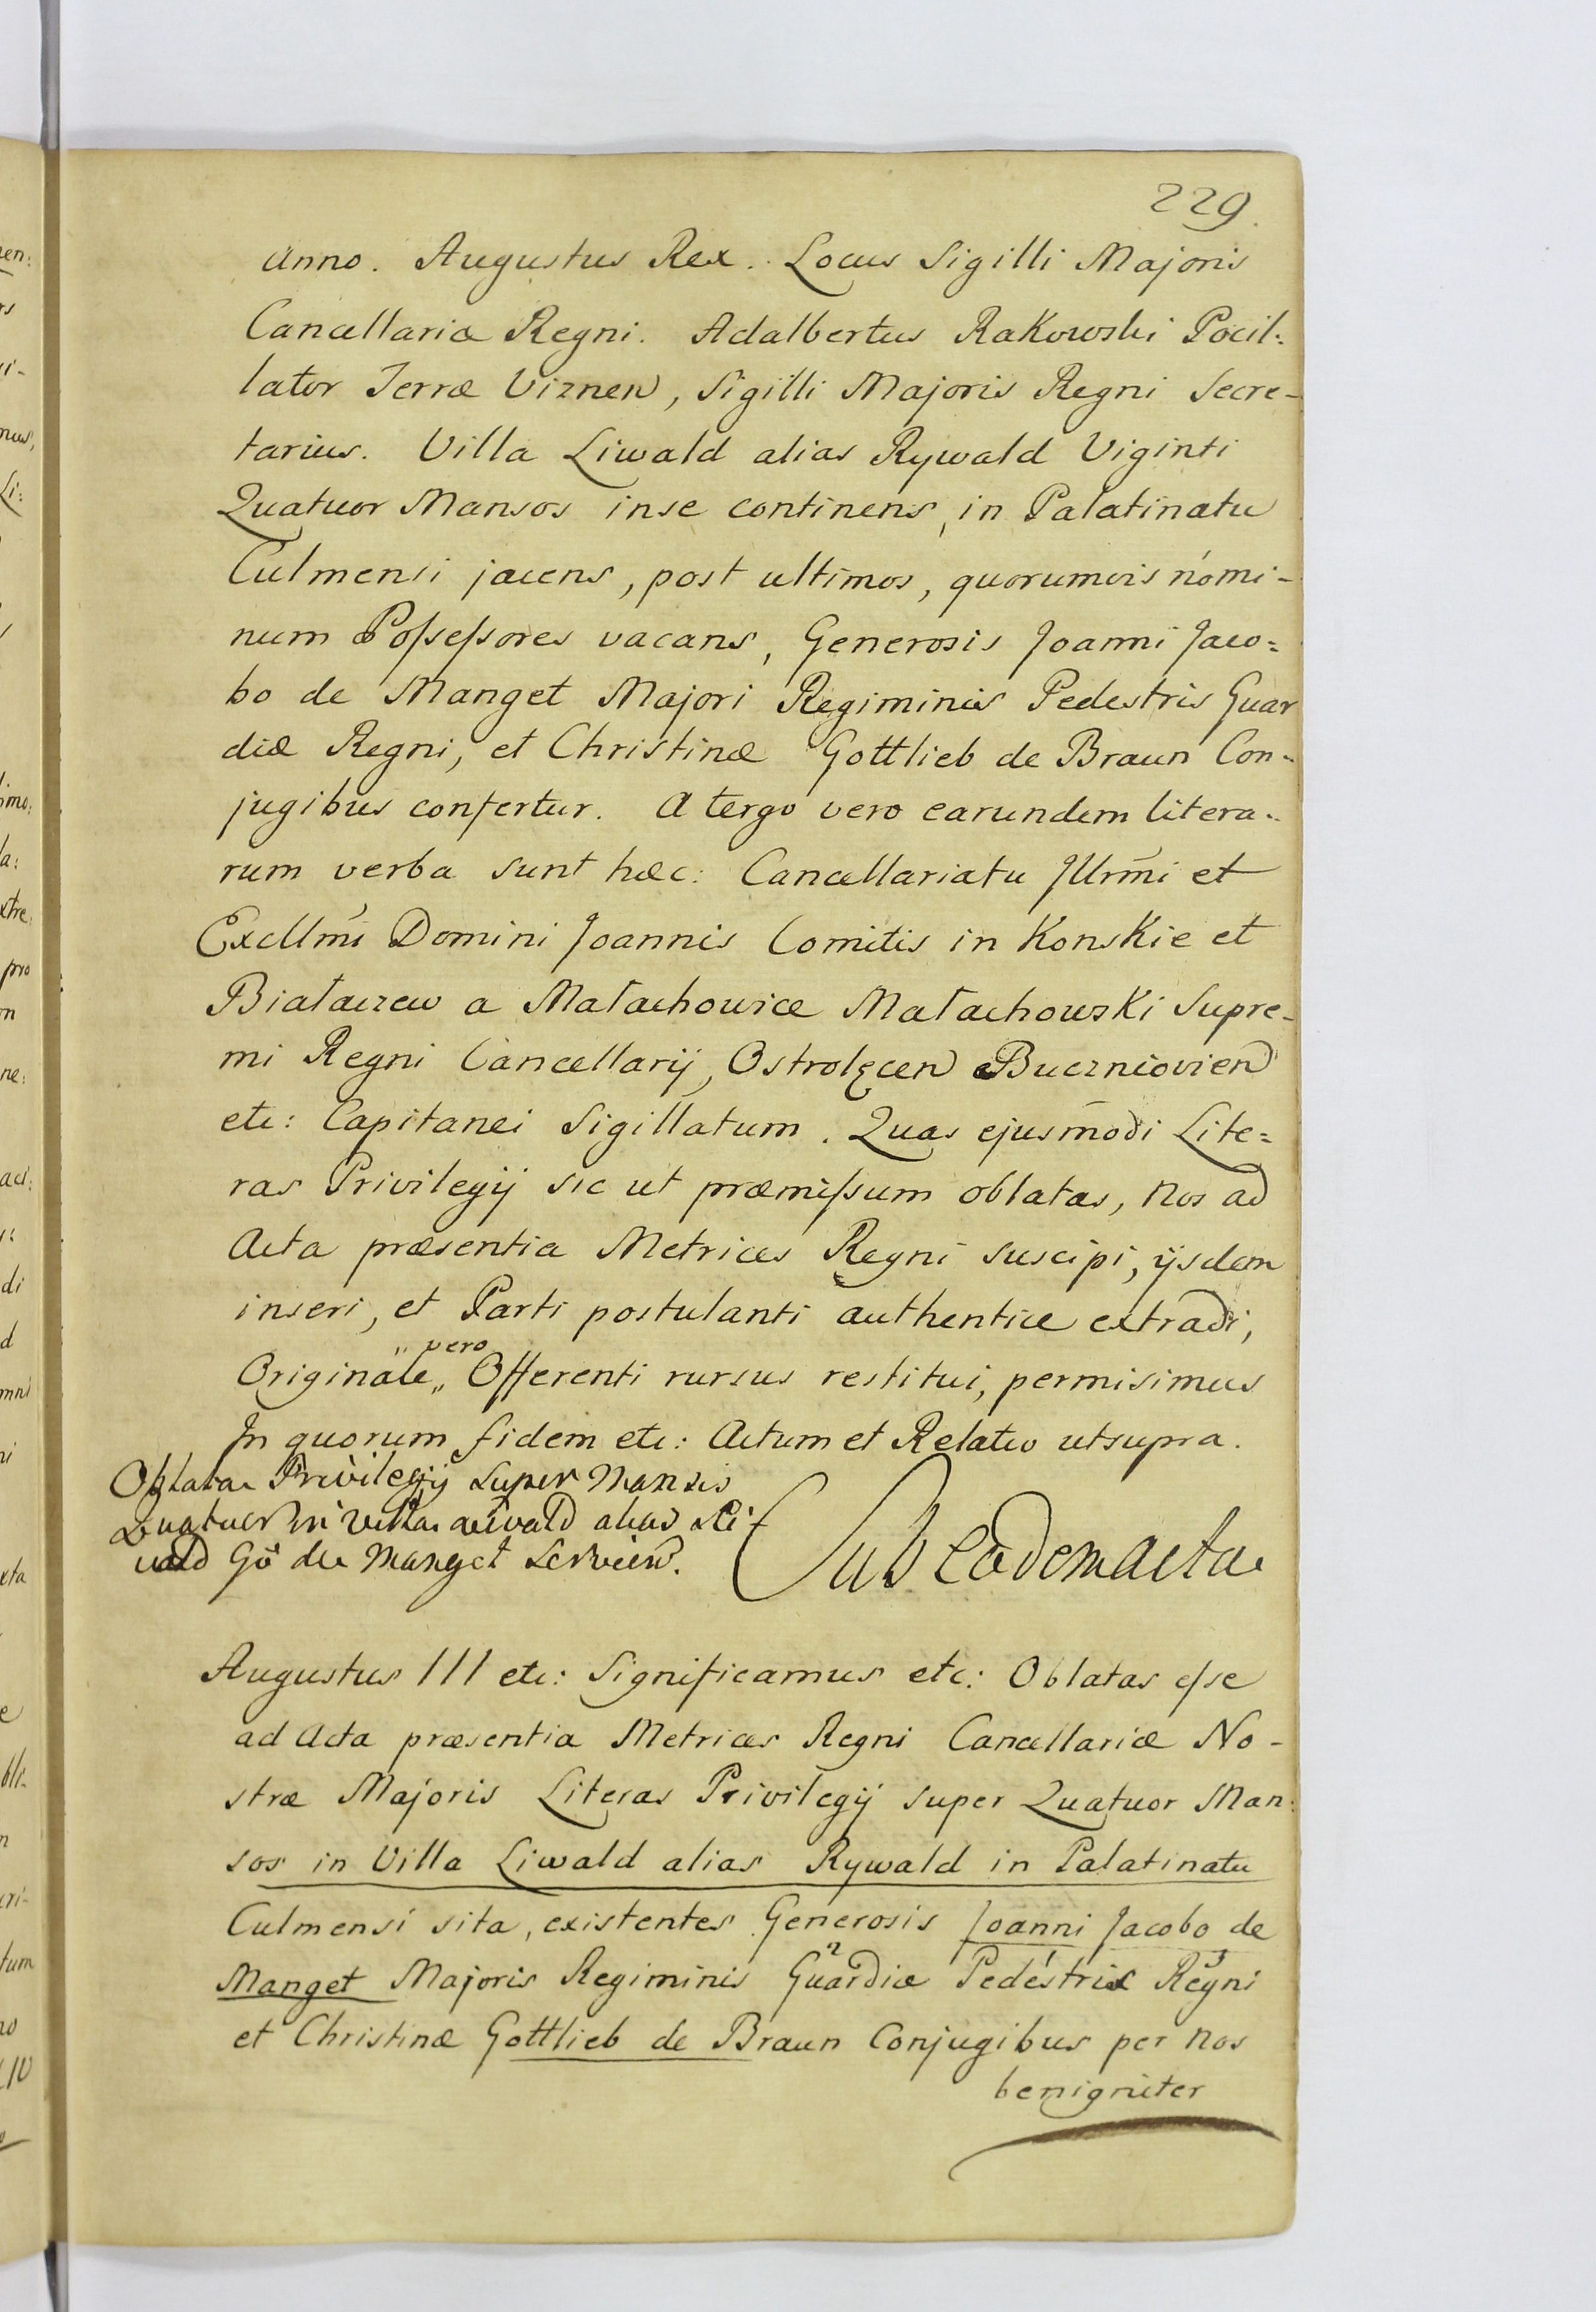 229.
Anno. Augustus Rex. Locus Sigilli Majoris
Cancellariæ Regni. Adalbertus Rakowski Pocil:
lator Terræ Viznen, Sigilli Majoris Regni Secre-
tarius. Villa Liwald alias Rywald Viginti
Quatuor Mansos inse continens, in Palatinatu
Culmensi jacens, post ultimos, quorumvis nomi-
num Possessores vacans, Generosis Joanni Jaco=
bo de Manget Majori Regiminis Pedestris Guar
diæ Regni, et Christinæ Gottlieb de Braun Con-
jugibus confertur. A tergo vero earundem litera-
rum verba sunt hæc: Cancellariatu Jllrmi et
Excllmi Domini Joannis Comitis in Konskie et
Białaczew a Małachowice Małachowski Supre-
mi Regni Cancellarij, Ostrolęcen Buczniovien
etc: Capitanei Sigillatum. Quas ejusmodi Lite=
ras Privilegij sic ut præmissum oblatas, Nos ad
Acta præsentia Metrices Regni suscipi, ijsdem
inseri, et Parti postulanti authentice extradi,
vero
Originale „ Offerenti rursus restitui, permisimus
In quorum fidem etc: Actum et Relatio utsupra.
Oblata Privilegij super Mansis
Quatuor in Villa Liwald alias Ri
wald Gō de Manget Servien.
Sub eadem acta
Augustus III etc: Significamus etc: Oblatas esse
ad Acta præsentia Metrices Regni Cancellariæ No-
stræ Majoris Literas Privilegij super Quatuor Man:
sos in Villa Liwald alias Rywald in Palatinatu
Culmensi sita, existentes Generosis Joanni Jacobo de
Manget Majoris Regiminis Guardiæ Pedestris Regni
et Christinæ Gottlieb de Braun Conjugibus per Nos
benigniter